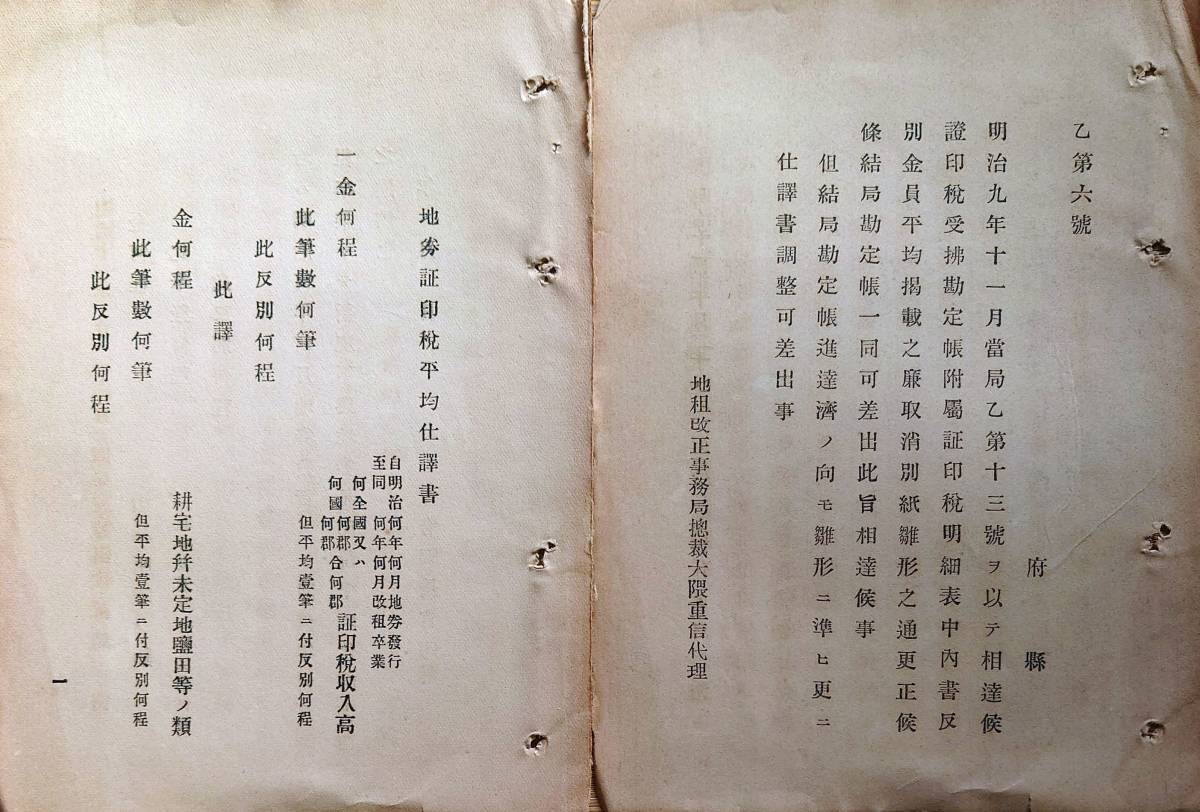 乙第六號
府縣
明治九年十一月當局乙第十三號ヲ以テ相達候
證印稅受拂勘定帳附屬証印稅明細表中內書反
別金員平均揭載之廉取消別紙雛形之通更正候
條結局勘定帳一同可差出此旨相達候事
但結局勘定帳進達濟ノ向モ雛形ニ準ヒ更ニ
仕譯書調整可差出事
地租改正事務局總裁大隈重信代理
地券証印稅平均仕譯書
自明治何年何月地券發行
至同何年何月改租卒業
一金何程
何全國又ハ
何國何郡合何郡
何郡
証印稅收入高
此筆數何筆
但平均壹筆ニ付反別何程
此反別何程
此譯
金何程
耕宅地幷未定地鹽田等ノ類
此筆數何筆
但平均壹筆ニ付反別何程
此反別何程
一